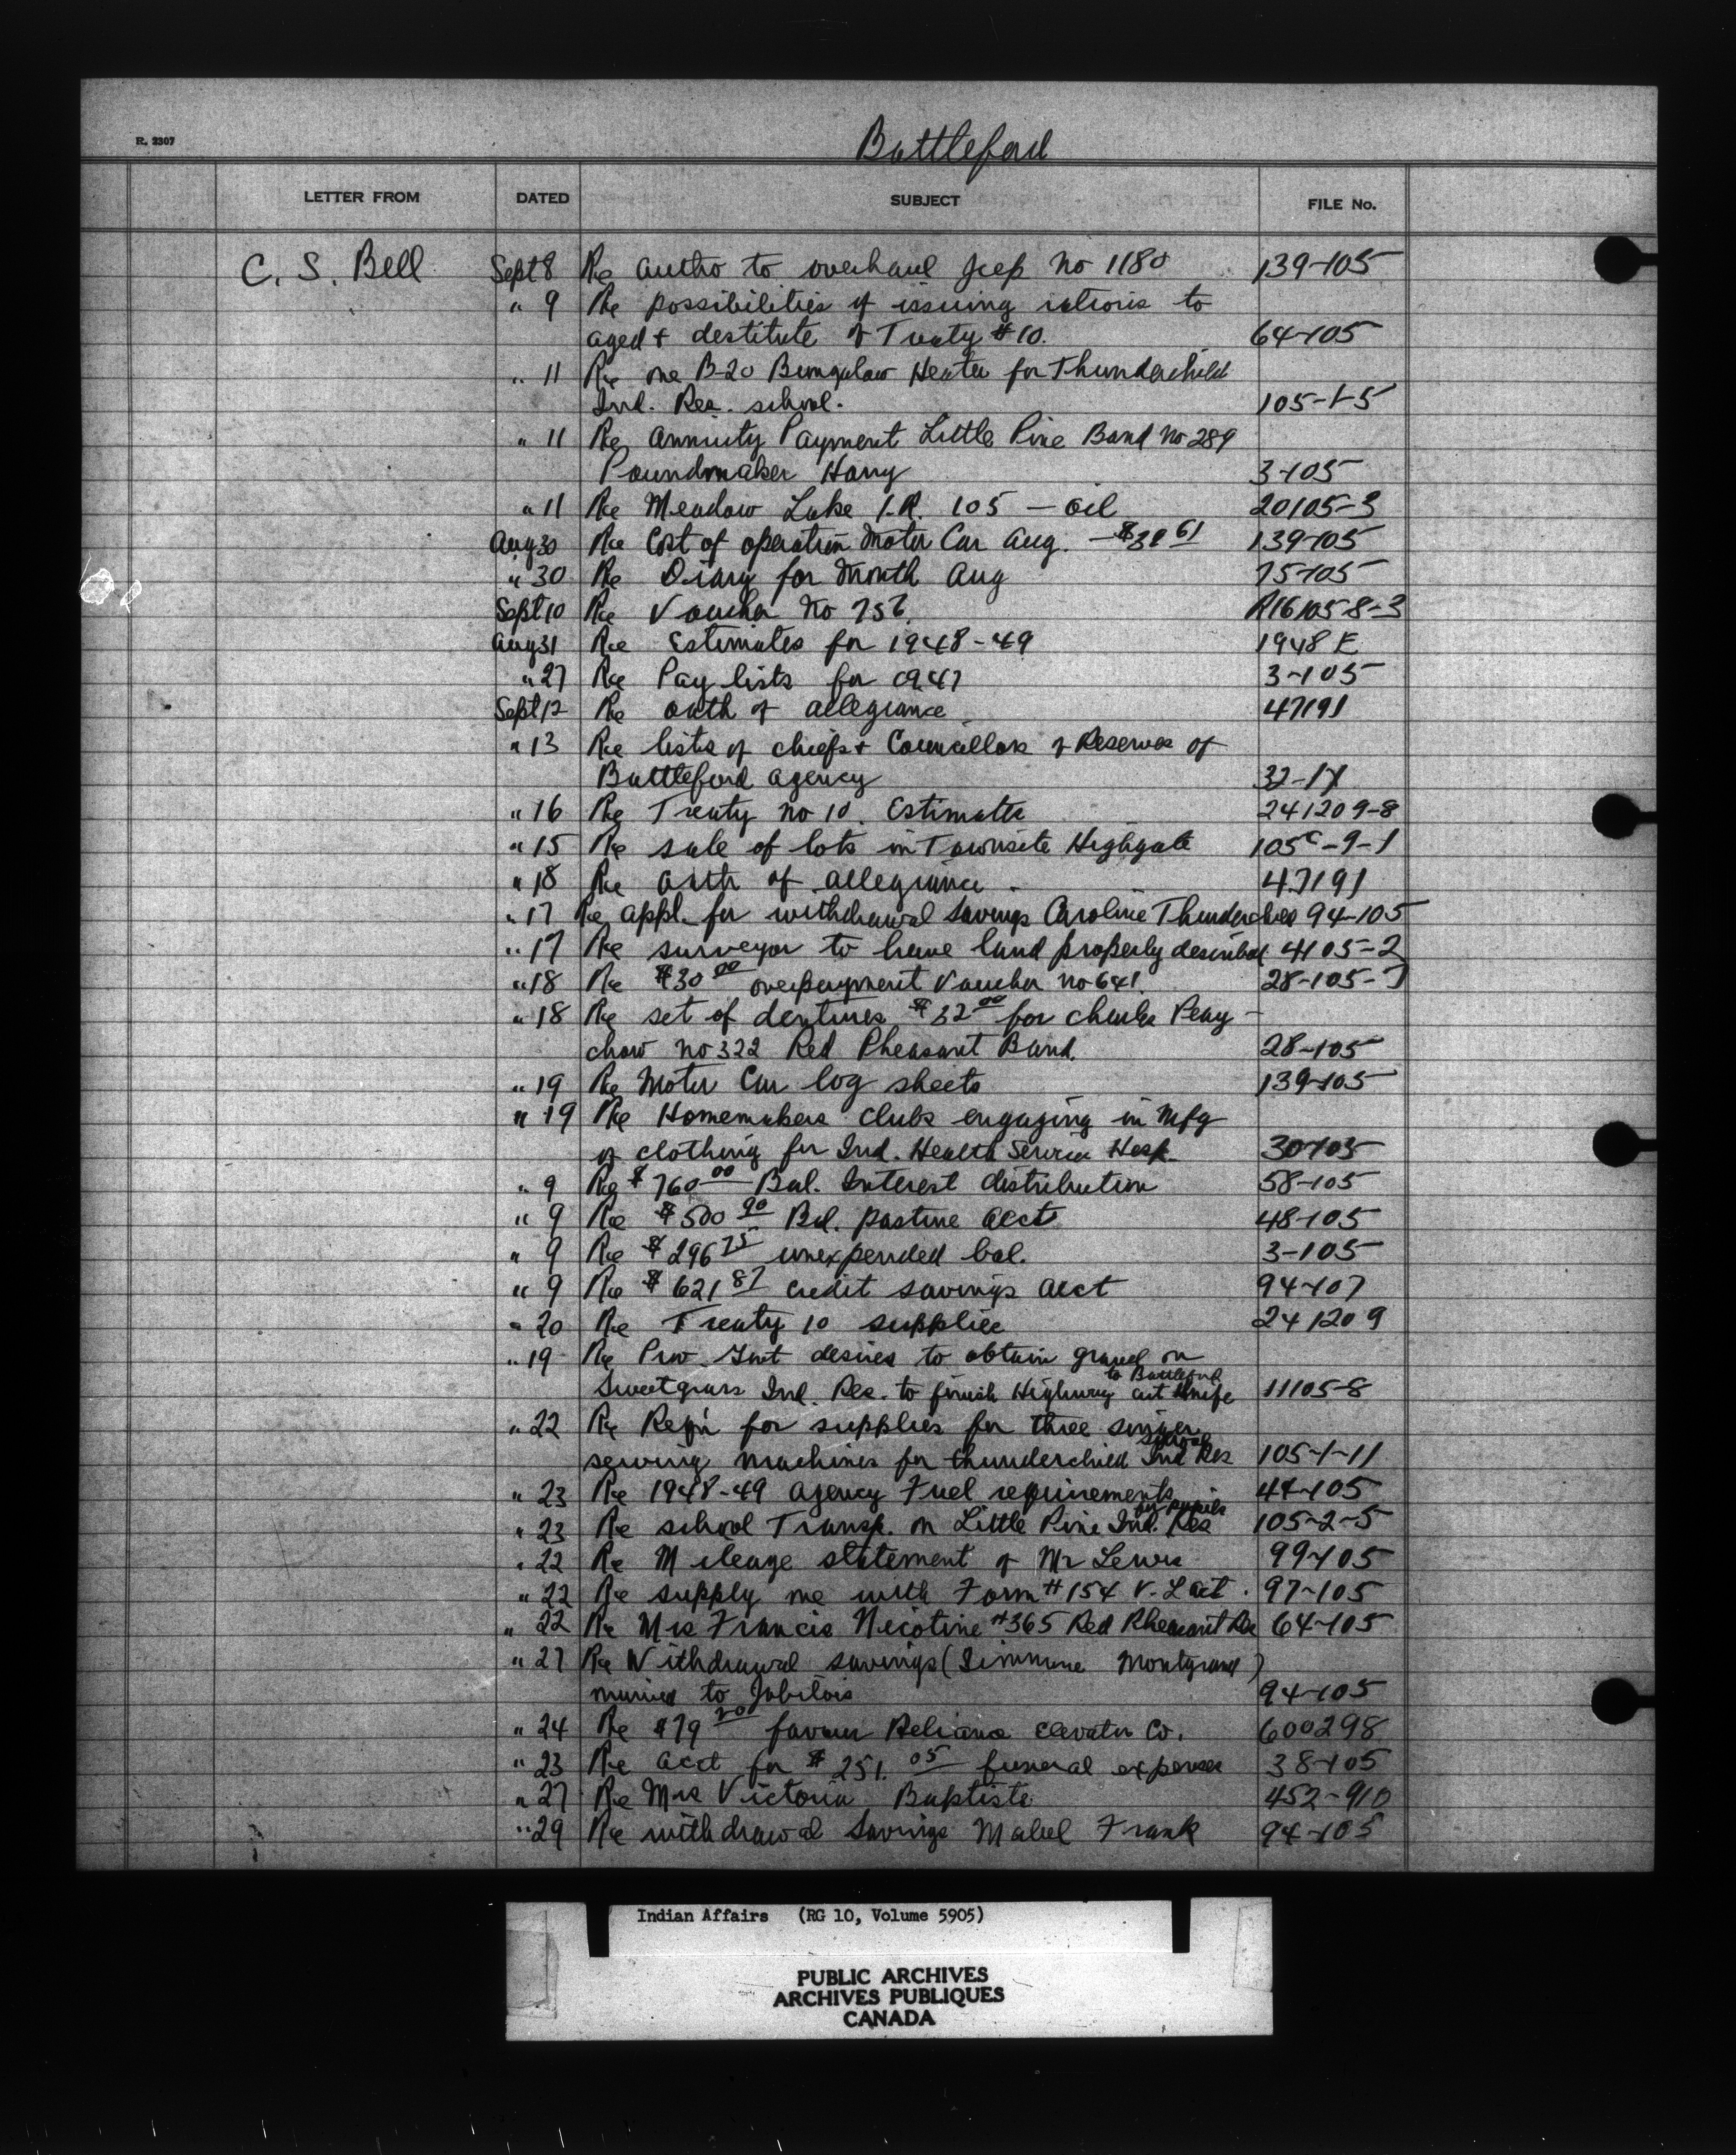 R. 2307
Battleford
LETTER FROM DATED SUBJECT FILE No.
C. S. Bell Sept 8 Re autho to overhaul Jeep No 1180 139-105
" 9 Re possibilities of issuing rations to
aged + destitute of Treaty #10. 64-105
" 11 Re one B-20 Bungalow Heater for Thunderchild
Ind. Res. school. 105-1-5
" 11 Re Annuity Payment Little Pine Band No 289
Poundmaker Harry 3-105
" 11 Re Meadow Lake I.R. 105 — oil 20105-3
Aug 30 Re Cost of operation Motor Car Aug. — 139-105
" 30 Re Diary for Month Aug 75-105
Sept 10 Re Voucher No 756. R16105-8-3
Aug 31 Re Estimates for 1948-49 1948 E
" 27 Re Pay lists for 1947 3-105
Sept 12 Re oath of allegiance 47191
" 13 Re lists of chiefs + Councellors of Reserves of
Battleford agency 32-17
" 16 Re Treaty No 10. Estimates 241209-8
" 15 Re sale of lots in Townsite Highgate 105c-9-1
" 18 Re oath of allegiance. 47191
" 17 Re appl. for withdrawal Savings Caroline Thunderchild 94-105
" 17 Re surveyor to have land properly described 4105-2
" 18 Re $30 00 overpayment Voucher no 641. 28-105-
" 18 Re set of dentures $32 00 for Charles Peay-
chow no 322 Red Pheasant Band. 28-105
" 19 Re Motor Car log sheets 139-105
" 19 Re Homemakers clubs engaging in Mfg
of clothing for Ind. Health Service Hosp. 30-105
" 9 Re $760 00 Bal. Interest distribution 58-105
" 9 Re $500 90 Bal. pasture acct 48-105
" 9 Re $296 75 unexpended bal. 3-105
" 9 Re $621 87 credit savings acct 94-107
" 20 Re Treaty 10 supplies 241209
" 19 Re Prov. Govt desires to obtain gravel on
to Battleford
Sweetgrass Ind. Res. to finish Highway cut knife 11105-8
" 22 Re Reqn for supplies for three singer
school
sewing machines for thunderchild Ind Res 105-1-11
" 23 Re 1948-49 agency Fuel requirements 44-105
for pupils
" 23 Re school Transp. on Little Pine Ind. Res 105-2-5
" 22 Re Mileage statement of Mr Lewis 99-105
" 22 Re supply me with Form #154 V. L act. 97-105
" 22 Re Mrs Francis Nicotine #365 Red Pheasant Res 64-105
" 27 Re Withdrawal savings ( Montgrand)
married to 94-105
" 24 Re $79 favour Reliance Elevator Co. 600298
" 23 Re acct for $251. 05 funeral expenses 38-105
" 27 Re Mrs Victoria Baptiste 452-910
" 29 Re withdrawal Savings Mabel Frank 94-105
Indian Affairs (RG 10, Volume 5905)
PUBLIC ARCHIVES
ARCHIVES PUBLIQUES
CANADA